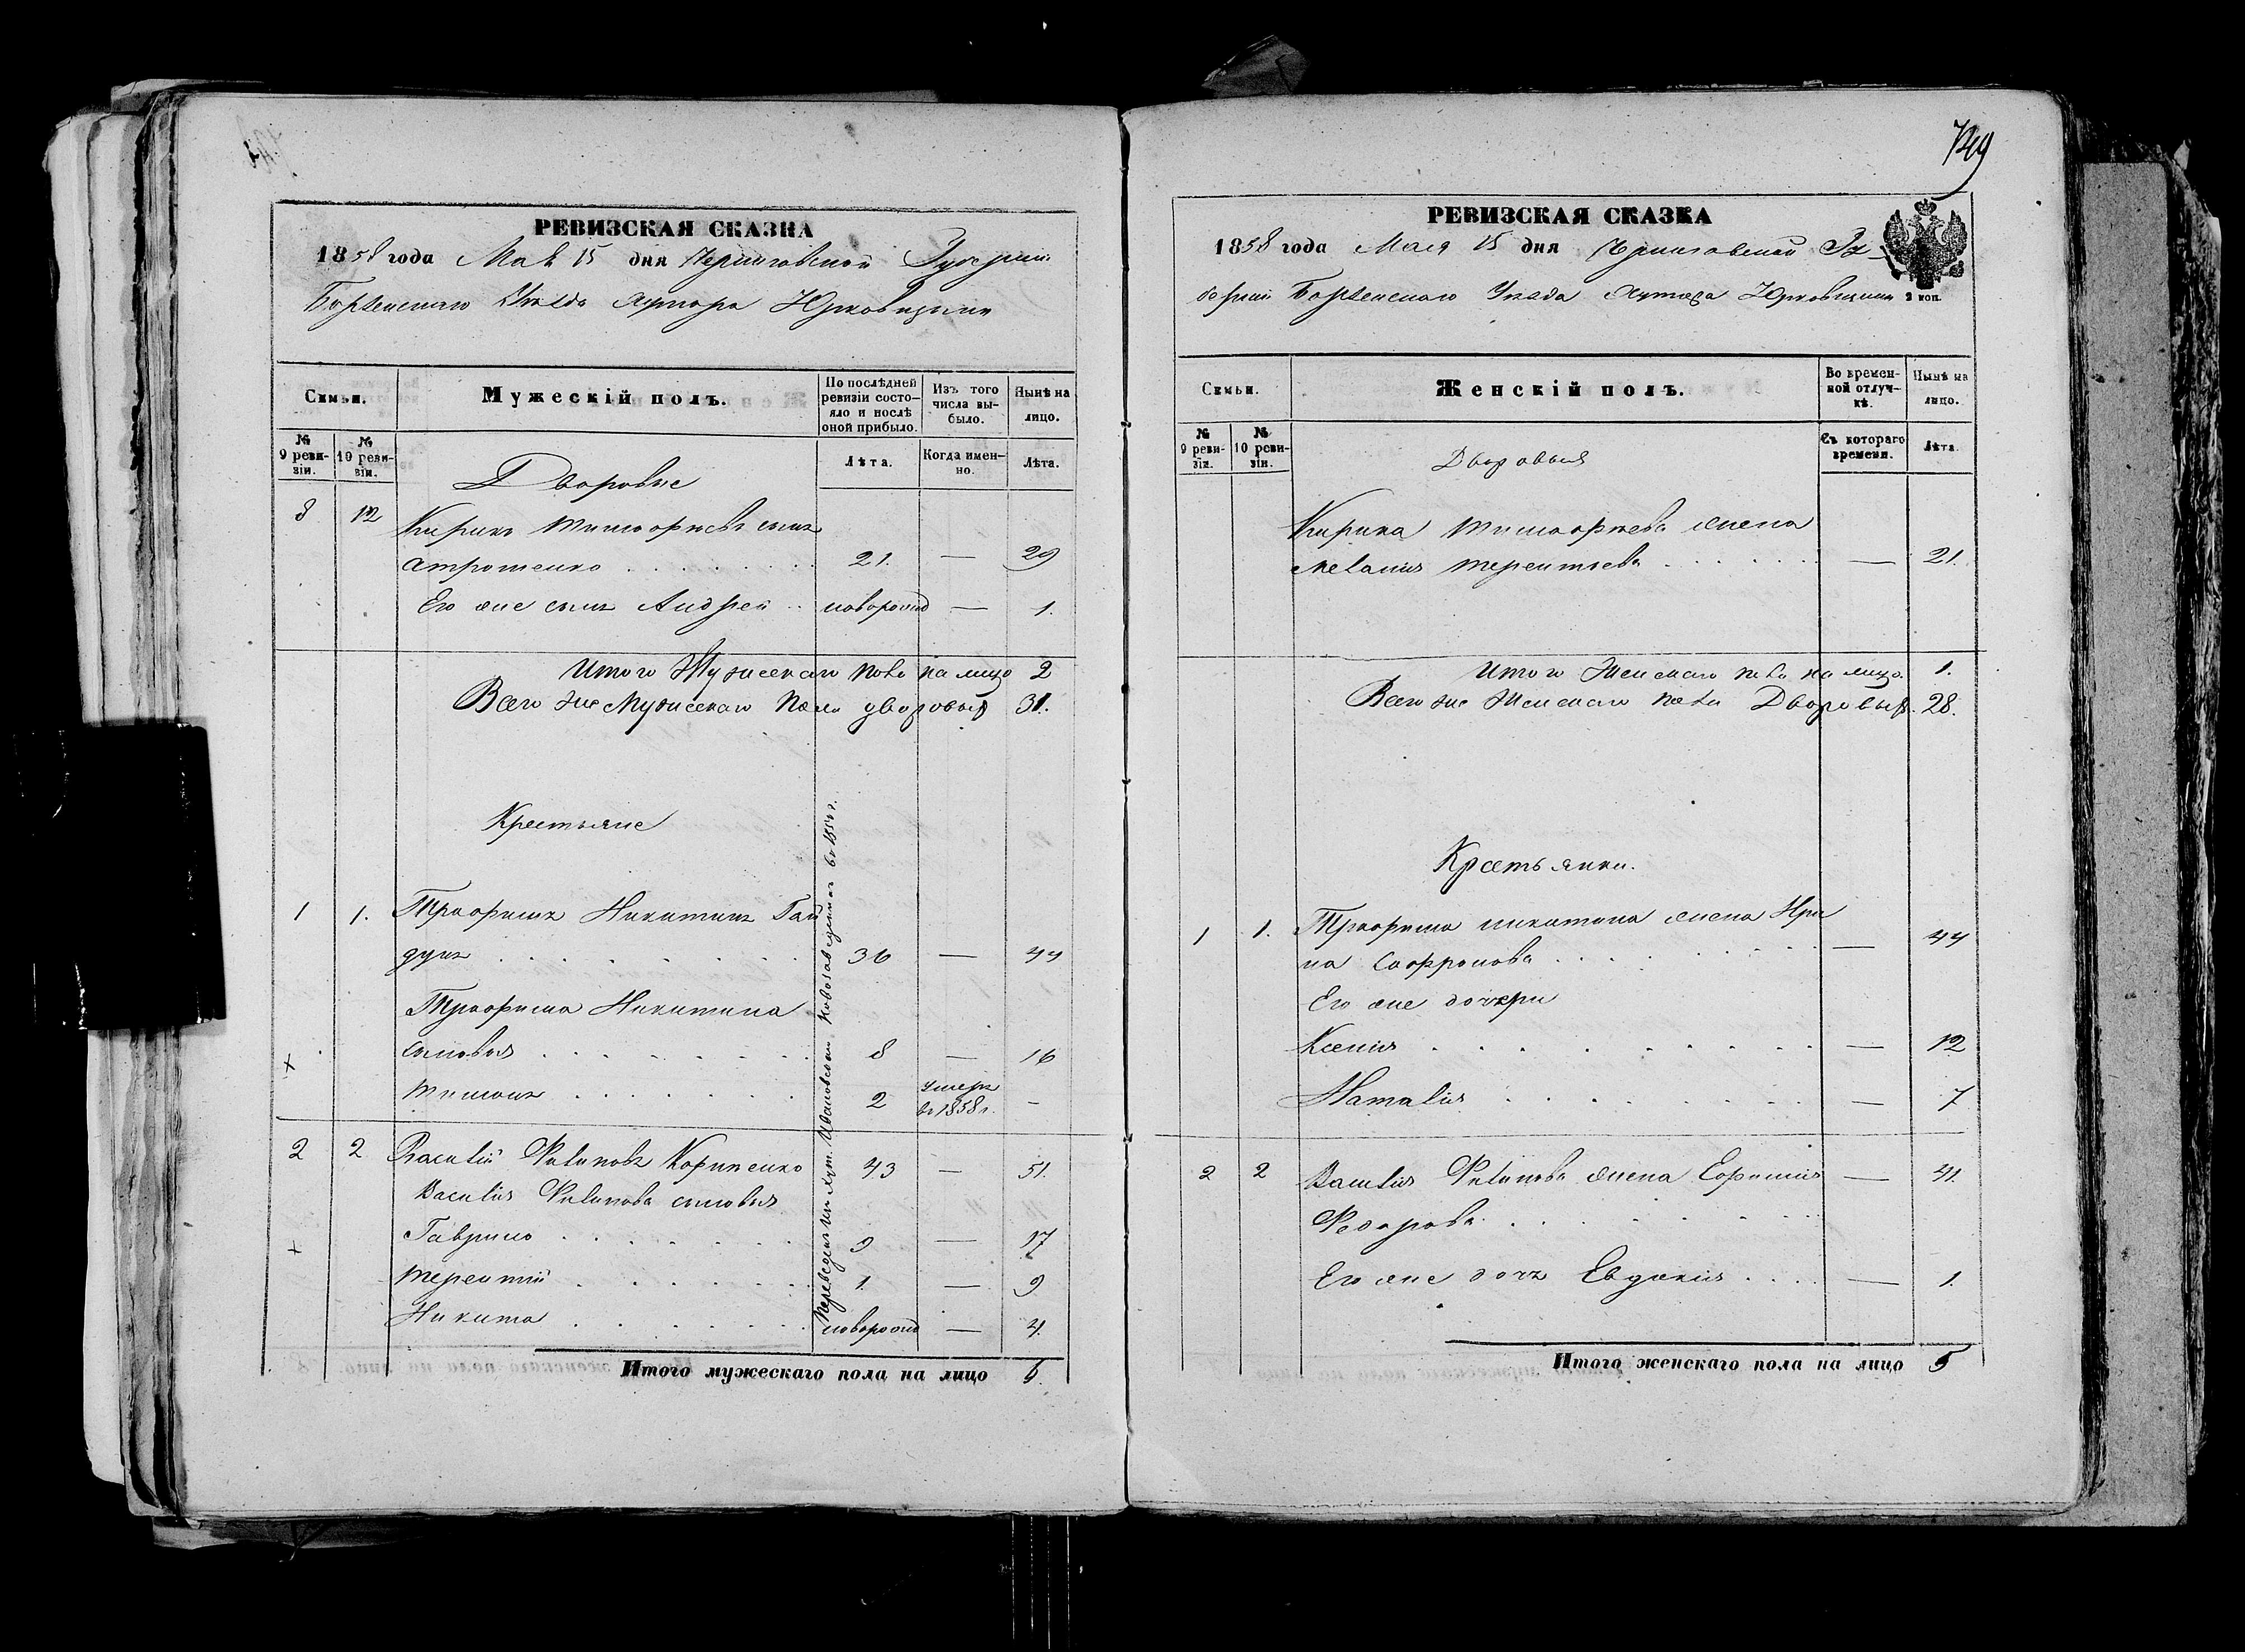 729
РЕВИЗСКАЯ СКАЗКА
1858 года Мая 15 дня Черниговской Губернии
Борзенского Уезда хутора Юрковщины
Семьи.
Мужескій полъ.
По послѣдней ревизіи состояло и послѣ оной прибыло.
Изъ того числа выбыло.
Нынѣ на лицо.
№ 9 ревизіи.
№ 10 ревизіи.
Лѣта.
Когда именно.
Лѣта.
Дворовые
8 12 Кирикъ Тимофѣевъ сынъ
Атрошенко 21. — 29
Его же сынъ Андрей новорожд — 1.
Итого Мужескаго пола на лицо 2
Всего же Мужескаго пола дворовыхъ 31.
Крестьяне
1 1. Трофимъ Никитинъ Гай
дукъ 36 — 44
Трофима Никитина
сыновья 8 — 16
Тимошъ 2 умеръ въ 1858 г. —
2 2 Василій Филиповъ Корниенко 43 — 51.
Василія Филипова сыновья
Гаврило 9 — 17
Терентій 1. — 9
Никита новорожд — 4.
въ 1854 г.
Итого мужескаго пола на лицо 6.
РЕВИЗСКАЯ СКАЗКА
1858 года Мая 15 дня Черниговской Гу-
берніи Борзенскаго Уезда Хутора Юрковщины
2 коп.
Семьи.
Женскій полъ.
Во временной отлучкѣ.
Нынѣ на лицо.
№ 9 ревизіи.
№ 10 ревизіи.
Съ котораго времени.
Лѣта.
Дворовыя
Кирика Тимофѣева жена
Меланія Терентьева — 21.
Итого Женскаго пола на лицо. 1.
Всего же Женскаго пола Дворовыхъ. 28.
Крестьянки.
1 1. Трофима Никитина жена Ири
на Сафронова — 44
Его же дочери
Ксенія — 12
Наталія — 7
2 2 Василія Филипова жена Ефимія — 41.
Федорова
Его же дочь Евдокія — 1.
Итого женскаго пола на лицо 5